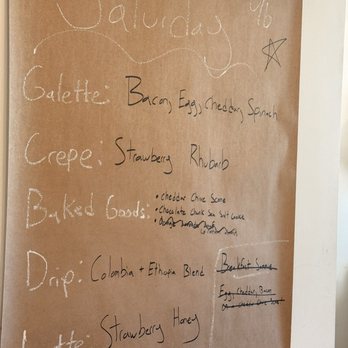 Saturday
Galette: Bacon, Egg, Cheddar, Spinach
Crepe: Strawberry Rhubarb
Baked Goods:
• Cheddar Chive Scone
• Chocolate Chunk Sea Salt Cookie
Drip: Colombia + Ethiopia Blend
Breakfast Scone
Egg, Cheddar, Bacon
on a Cheddar Chive Scone
Latte: Strawberry Honey